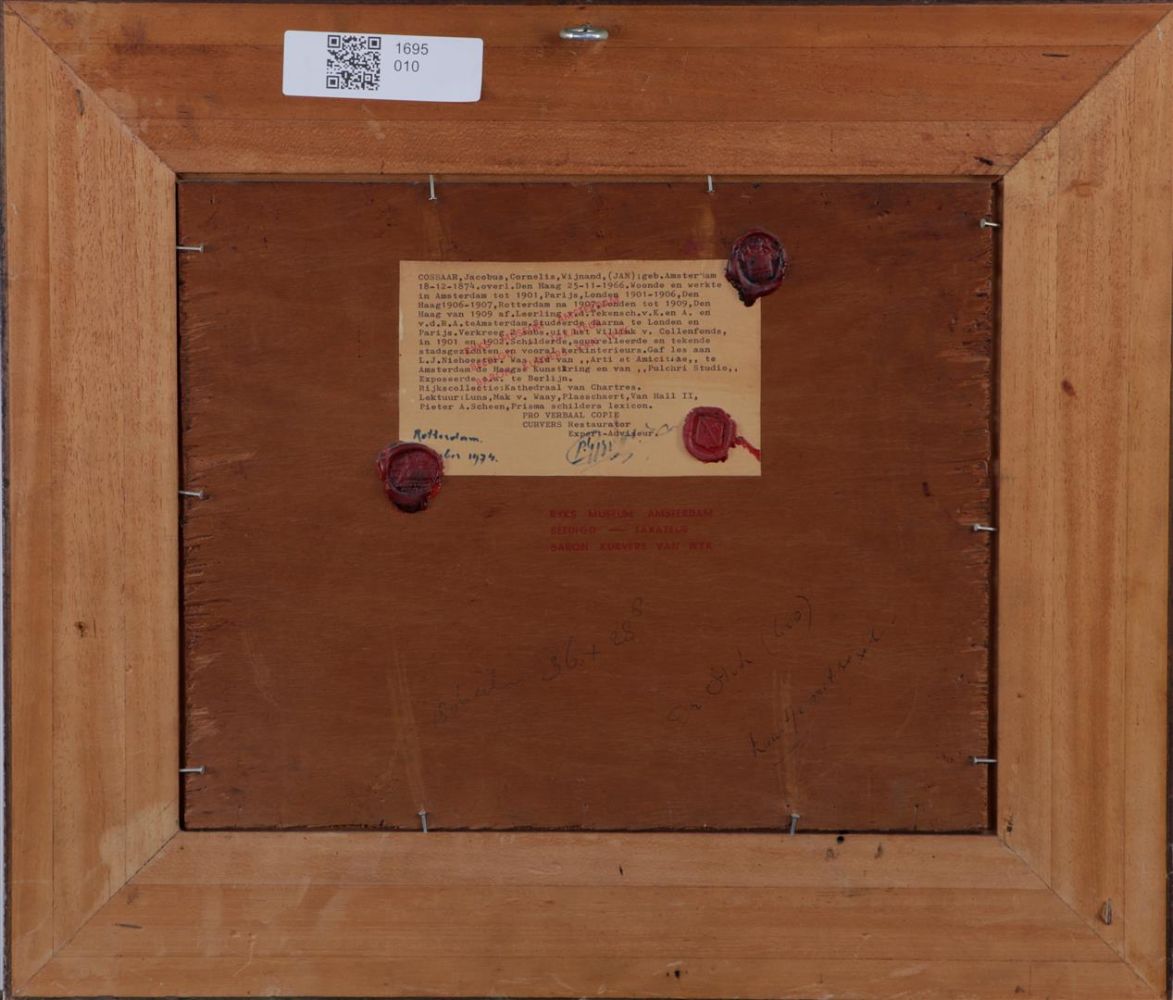 1695
010
COSSAAR,Jacobus,Cornelis,Wijnand,(JAN):geb.Amsterdam
18-12-1874,overl.Den Haag 25-11-1966.Woonde en werkte
in Amsterdam tot 1901,Parijs,Londen 1901-1906,Den
Haag1906-1907,Rotterdam na 1907,Londen tot 1909,Den
Haag van 1909 af.Leerling v.d.Tekensch.v.K.en A. en
v.d.R.A.teAmsterdam.Studeerde daarna te Londen en
Parijs.Verkreeg subs.uit het Willink v. Collenfonds,
in 1901 en 1902.Schilderde,aquarelleerde en tekende
stadsgezichten en vooral kerkinterieurs.Gaf les aan
L.J.Niehoester. Was lid van ,,Arti et Amicitiae,, te
Amsterdam de Haagse Kunstkring en van ,,Pulchri Studio,,
Exposeerde o.w. te Berlijn.
Rijkscollectie:Kathedraal van Chartres.
Lektuur:Luns,Mak v. Waay,Plasschaert,Van Hall II,
Pieter A.Scheen,Prisma schilders lexicon.
PRO VERBAAL COPIE
CURVERS Restaurator
Expert-Adviseur.
Rotterdam.
1974.
RYKS MUSEUM AMSTERDAM
BEËDIGD — TAXATEUR
BARON KURVERS VAN WYK
36 x 28